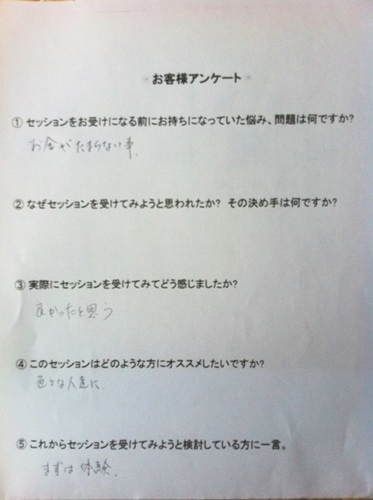 お客様アンケート
① セッションをお受けになる前にお持ちになっていた悩み、問題は何ですか?
お金がたまらない事、
② なぜセッションを受けてみようと思われたか? その決め手は何ですか?
③ 実際にセッションを受けてみてどう感じましたか?
良かったと思う
④ このセッションはどのような方にオススメしたいですか?
色々な人達に、
⑤ これからセッションを受けてみようと検討している方に一言。
まずは体験、